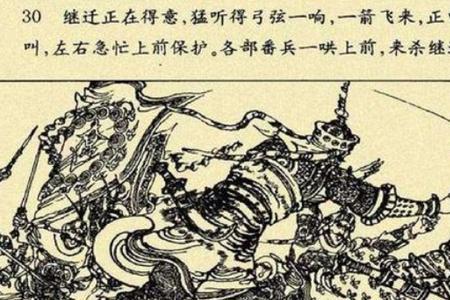 30 继迁正在得意，猛听得弓弦一响，一箭飞来，正
叫，左右急忙上前保护。各部番兵一哄上前，来杀继